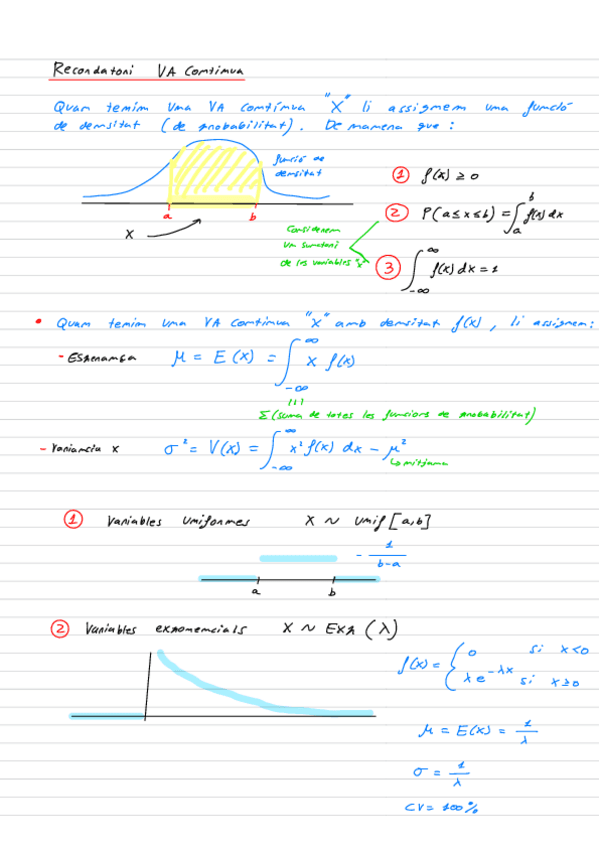 Recordatori VA Contínua
Quan tenim una VA contínua "X" li assignem una funció
de densitat (de probabilitat). De manera que:
funció de
densitat
① f(x) ≥ 0
a b
② P(a ≤ x ≤ b) = ∫_a^b f(x) dx
X
Considerem
un sumatori
de les variables "x"
③ ∫_{-∞}^{∞} f(x) dx = 1
• Quan tenim una VA contínua "X" amb densitat f(x), li assignem:
- Esperança μ = E(x) = ∫_{-∞}^{∞} x f(x)
Σ (suma de totes les funcions de probabilitat)
- Variancia x σ² = V(x) = ∫_{-∞}^{∞} x² f(x) dx - μ²
↳ mitjana
① Variables uniformes X ~ Unif [a,b]
- 1/(b-a)
a b
② Variables exponencials X ~ Exp (λ)
f(x) = { 0 si x<0
λe^{-λx} si x≥0
μ = E(x) = 1/λ
σ = 1/λ
CV = 100%